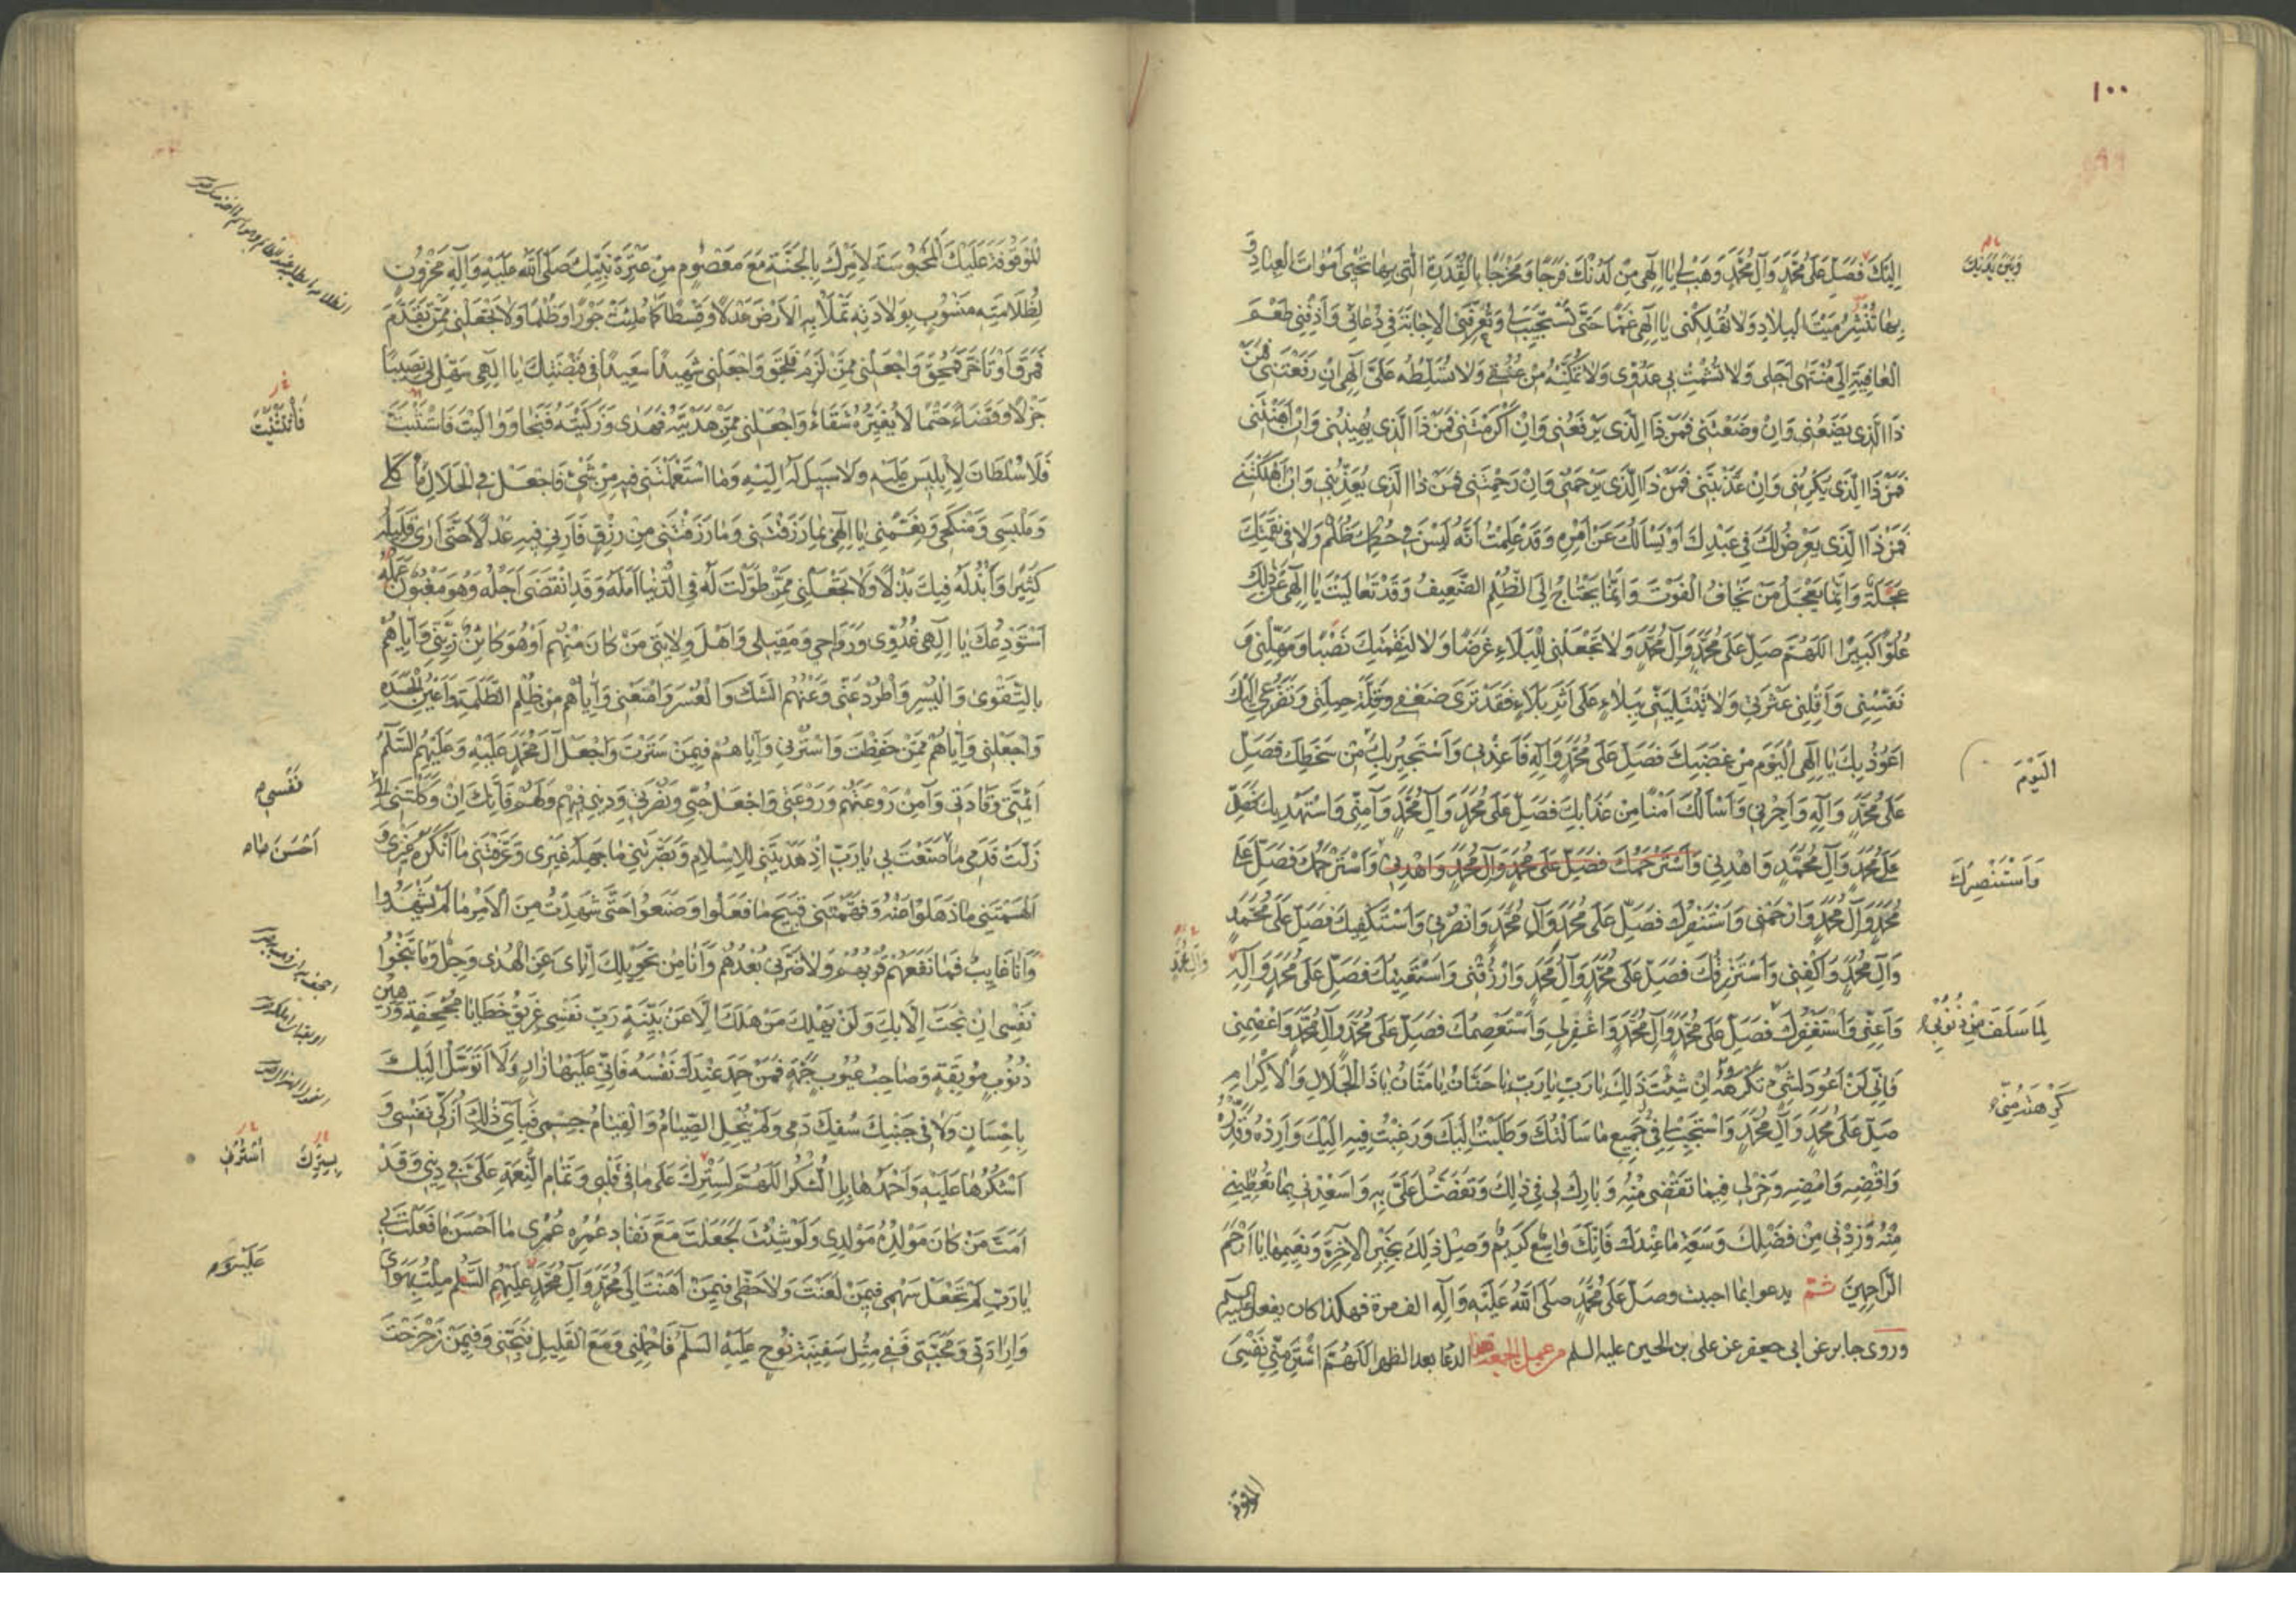 ١٠٠
اِلَيْكَ فَصَلِّ عَلٰى مُحَمَّدٍ وَآلِ مُحَمَّدٍ وَهَبْ لِي يَا اِلٰهِي مِنْ لَدُنْكَ فَرَجًا وَمَخْرَجًا بِالْقُدْرَةِ الَّتِي بِهَا تُحْيِي اَمْوَاتَ الْعِبَادِ وَ
بِهَا تَنْشُرُ مَيْتَ الْبِلَادِ وَلَا تُهْلِكْنِي يَا اِلٰهِي غَمًّا حَتّٰى تَسْتَجِيبَ لِي وَتُعَرِّفَنِي الْاِجَابَةَ فِي دُعَائِي وَاَذِقْنِي طَعْمَ
الْعَافِيَةِ اِلٰى مُنْتَهٰى اَجَلِي وَلَا تُشْمِتْ بِي عَدُوِّي وَلَا تُمَكِّنْهُ مِنْ عُنُقِي وَلَا تُسَلِّطْهُ عَلَيَّ اِلٰهِي اِنْ رَفَعْتَنِي فَمَنْ
ذَا الَّذِي يَضَعُنِي وَاِنْ وَضَعْتَنِي فَمَنْ ذَا الَّذِي يَرْفَعُنِي وَاِنْ اَكْرَمْتَنِي فَمَنْ ذَا الَّذِي يُهِينُنِي وَاِنْ اَهَنْتَنِي
فَمَنْ ذَا الَّذِي يُكْرِمُنِي وَاِنْ عَذَّبْتَنِي فَمَنْ ذَا الَّذِي يَرْحَمُنِي وَاِنْ رَحِمْتَنِي فَمَنْ ذَا الَّذِي يُعَذِّبُنِي وَاِنْ اَهْلَكْتَنِي
فَمَنْ ذَا الَّذِي يَعْرِضُ لَكَ فِي عَبْدِكَ اَوْ يَسْاَلُكَ عَنْ اَمْرِهِ وَقَدْ عَلِمْتُ اَنَّهُ لَيْسَ فِي حُكْمِكَ ظُلْمٌ وَلَا فِي نَقِمَتِكَ
عَجَلَةٌ وَاِنَّمَا يَعْجَلُ مَنْ يَخَافُ الْفَوْتَ وَاِنَّمَا يَحْتَاجُ اِلَى الظُّلْمِ الضَّعِيفُ وَقَدْ تَعَالَيْتَ يَا اِلٰهِي عَنْ ذٰلِكَ
عُلُوًّا كَبِيرًا اَللّٰهُمَّ صَلِّ عَلٰى مُحَمَّدٍ وَآلِ مُحَمَّدٍ وَلَا تَجْعَلْنِي لِلْبَلَاءِ غَرَضًا وَلَا لِنَقِمَتِكَ نَصْبًا وَمَهِّلْنِي وَ
نَفِّسْنِي وَاَقِلْنِي عَثْرَتِي وَلَا تَبْتَلِيَنِّي بِبَلَاءٍ عَلٰى اَثَرِ بَلَاءٍ فَقَدْ تَرٰى ضَعْفِي وَقِلَّةَ حِيلَتِي وَتَضَرُّعِي اِلَيْكَ
اَعُوذُ بِكَ يَا اِلٰهِي الْيَوْمَ مِنْ غَضَبِكَ فَصَلِّ عَلٰى مُحَمَّدٍ وَآلِهِ فَاَعِذْنِي وَاَسْتَجِيرُ بِكَ مِنْ سَخَطِكَ فَصَلِّ
عَلٰى مُحَمَّدٍ وَآلِهِ وَاَجِرْنِي وَاَسْاَلُكَ اَمْنًا مِنْ عَذَابِكَ فَصَلِّ عَلٰى مُحَمَّدٍ وَآلِ مُحَمَّدٍ وَآمِنِّي وَاَسْتَهْدِيكَ فَصَلِّ
عَلٰى مُحَمَّدٍ وَآلِ مُحَمَّدٍ وَاهْدِنِي وَاَسْتَرْحِمُكَ فَصَلِّ عَلٰى مُحَمَّدٍ وَآلِ مُحَمَّدٍ وَاهْدِنِي وَاَسْتَرْحِمُكَ فَصَلِّ عَلٰى
مُحَمَّدٍ وَآلِ مُحَمَّدٍ وَارْحَمْنِي وَاَسْتَنْصِرُكَ فَصَلِّ عَلٰى مُحَمَّدٍ وَآلِ مُحَمَّدٍ وَانْصُرْنِي وَاَسْتَكْفِيكَ فَصَلِّ عَلٰى مُحَمَّدٍ
وَآلِ مُحَمَّدٍ وَاكْفِنِي وَاَسْتَرْزِقُكَ فَصَلِّ عَلٰى مُحَمَّدٍ وَآلِ مُحَمَّدٍ وَارْزُقْنِي وَاَسْتَعِينُكَ فَصَلِّ عَلٰى مُحَمَّدٍ وَآلِهِ
وَاَعِنِّي وَاَسْتَغْفِرُكَ فَصَلِّ عَلٰى مُحَمَّدٍ وَآلِ مُحَمَّدٍ وَاغْفِرْ لِي وَاَسْتَعْصِمُكَ فَصَلِّ عَلٰى مُحَمَّدٍ وَآلِ مُحَمَّدٍ وَاعْصِمْنِي
فَاِنِّي لَنْ اَعُودَ لِشَيْءٍ تَكْرَهُهُ اِنْ شِئْتَ ذٰلِكَ يَا رَبِّ يَا رَبِّ يَا حَنَّانُ يَا مَنَّانُ يَا ذَا الْجَلَالِ وَالْاِكْرَامِ
صَلِّ عَلٰى مُحَمَّدٍ وَآلِ مُحَمَّدٍ وَاسْتَجِبْ لِي فِي جَمِيعِ مَا سَاَلْتُكَ وَطَلَبْتُ اِلَيْكَ وَرَغِبْتُ فِيهِ اِلَيْكَ وَاَرِدْهُ وَقَدِّرْهُ
وَاقْضِهِ وَاَمْضِهِ وَخِرْ لِي فِيمَا تَقْضِي مِنْهُ وَبَارِكْ لِي فِي ذٰلِكَ وَتَفَضَّلْ عَلَيَّ بِهِ وَاَسْعِدْنِي بِمَا تُعْطِينِي
مِنْهُ وَزِدْنِي مِنْ فَضْلِكَ وَسَعَةِ مَا عِنْدَكَ فَاِنَّكَ وَاسِعٌ كَرِيمٌ وَصِلْ ذٰلِكَ بِخَيْرِ الْآخِرَةِ وَنَعِيمِهَا يَا اَرْحَمَ
الرَّاحِمِينَ ثم يدعوا بما احببت وصل على محمد صلى الله عليه وآله الف مرة فهكذا كان يفعل عليه السلم
وروى جابر عن ابى جعفر عن على بن الحسين عليه السلم من عمل الجمعة هذا الدعا بعد الظهر اَللّٰهُمَّ اشْتَرِ مِنِّي نَفْسِيَ
وَبَيْنَ يَدَيْكَ
الْيَوْمَ
وَاَسْتَنْصِرُكَ
لِمَا سَلَفَ مِنْ ذُنُوبِي
كَرِهْتَهُ مِنِّي
الموقوفة
لْمَوْقُوفَةَ عَلَيْكَ الْمَحْبُوسَةَ لِاَمْرِكَ بِالْجَنَّةِ مَعَ مَعْصُومٍ مِنْ عِتْرَةِ نَبِيِّكَ صَلَّى اللهُ عَلَيْهِ وَآلِهِ مَحْزُونٍ
لِظُلَامَتِهِ مَنْسُوبٍ بِوِلَادَتِهِ تَمْلَأُ بِهِ الْاَرْضَ عَدْلًا وَقِسْطًا كَمَا مُلِئَتْ جَوْرًا وَظُلْمًا وَلَا تَجْعَلْنِي مِمَّنْ تَقَدَّمَ
فَمَرَقَ اَوْ تَاَخَّرَ فَمُحِقَ وَاجْعَلْنِي مِمَّنْ لَزِمَ فَلَحِقَ وَاجْعَلْنِي شَهِيدًا سَعِيدًا فِي قَبْضَتِكَ يَا اِلٰهِي سَهِّلْ لِي نَصِيبًا
جَزْلًا وَقَضَاءً حَتْمًا لَا يُغَيِّرُهُ شَقَاءٌ وَاجْعَلْنِي مِمَّنْ هَدَيْتَهُ فَهَدٰى وَزَكَّيْتَهُ فَنَجَا وَوَالَيْتَ فَاسْتَثْبَتَ
فَلَا سُلْطَانَ لِاِبْلِيسَ عَلَيْهِ وَلَا سَبِيلَ لَهُ اِلَيْهِ وَمَا اسْتَعْمَلْتَنِي فِيهِ مِنْ شَيْءٍ فَاجْعَلْ فِي الْحَلَالِ مَأْكَلِي
وَمَلْبَسِي وَمَنْكَحِي وَنَعِّمْنِي يَا اِلٰهِي بِمَا رَزَقْتَنِي وَمَا رَزَقْتَنِي مِنْ رِزْقٍ فَاَرِنِي فِيهِ عَدْلًا حَتّٰى اَرٰى قَلِيلَهُ
كَثِيرًا وَاَبْذُلَهُ فِيكَ بَذْلًا وَلَا تَجْعَلْنِي مِمَّنْ طَوَّلْتَ لَهُ فِي الدُّنْيَا اَمَلَهُ وَقَدِ انْقَضٰى اَجَلُهُ وَهُوَ مَغْبُونٌ عَمَلُهُ
اَسْتَوْدِعُكَ يَا اِلٰهِي غُدُوِّي وَرَوَاحِي وَمَقِيلِي وَاَهْلَ وِلَايَتِي مَنْ كَانَ مِنْهُمْ اَوْ هُوَ كَائِنٌ زَيِّنِّي وَاِيَّاهُمْ
بِالتَّقْوٰى وَالْيُسْرِ وَاطْرُدْ عَنِّي وَعَنْهُمُ الشَّكَّ وَالْعُسْرَ وَامْنَعْنِي وَاِيَّاهُمْ مِنْ ظُلْمِ الظَّلَمَةِ وَاَعْيُنِ الْحَسَدَةِ
وَاجْعَلْنِي وَاِيَّاهُمْ مِمَّنْ حَفِظْتَ وَاسْتُرْنِي وَاِيَّاهُمْ فِيمَنْ سَتَرْتَ وَاجْعَلْ آلَ مُحَمَّدٍ عَلَيْهِ وَعَلَيْهِمُ السَّلٰمُ
اَئِمَّتِي وَقَادَتِي وَآمِنْ رَوْعَتَهُمْ وَرَوْعَتِي وَاجْعَلْ حُبِّي وَنُصْرَتِي وَدِينِي فِيهِمْ وَلَهُمْ فَاِنَّكَ اِنْ وَكَلْتَنِي اِلٰى
زَلَّتْ قَدَمِي مَا صَنَعْتَ بِي يَا رَبِّ اِذْ هَدَيْتَنِي لِلْاِسْلَامِ وَبَصَّرْتَنِي مَا جَهِلَهُ غَيْرِي وَعَرَّفْتَنِي مَا اَنْكَرَهُ غَيْرِي وَ
اَلْهَمْتَنِي مَا ذَهَلُوا عَنْهُ وَفَهَّمْتَنِي قَبِيحَ مَا فَعَلُوا وَصَنَعُوا حَتّٰى شَهِدْتُ مِنَ الْاَمْرِ مَا لَمْ يَشْهَدُوا
وَاَنَا غَائِبٌ فَمَا نَفَعَهُمْ قُرْبُهُمْ وَلَا ضَرَّنِي بُعْدُهُمْ وَاَنَا مِنْ تَحْوِيلِكَ اِيَّايَ عَنِ الْهُدٰى وَجِلٌ وَمَا تَنْجُوا
نَفْسِي اِنْ نَجَتْ اِلَّا بِكَ وَلَنْ يَهْلِكَ مَنْ هَلَكَ اِلَّا عَنْ بَيِّنَةٍ رَبِّ نَفْسِي غَرِيقُ خَطَايَا مُجْحِفَةٍ وَرَهِينُ
ذُنُوبٍ مُوبِقَةٍ وَصَاحِبُ عُيُوبٍ جَمَّةٍ فَمَنْ حَمِدَ عِنْدَكَ نَفْسَهُ فَاِنِّي عَلَيْهَا زَارٍ وَلَا اَتَوَسَّلُ اِلَيْكَ
بِاِحْسَانٍ وَلَا فِي جَنْبِكَ سُفِكَ دَمِي وَلَمْ يُنْحِلِ الصِّيَامُ وَالْقِيَامُ جِسْمِي فَبِاَيِّ ذٰلِكَ اُزَكِّي نَفْسِي وَ
اَشْكُرُهَا عَلَيْهِ وَاَحْمَدُهَا بِهِ بَلِ الشُّكْرُ اَللّٰهُمَّ لِسَتْرِكَ عَلٰى مَا فِي قَلْبِي وَتَمَامِ النِّعْمَةِ عَلَيَّ فِي دِينِي وَقَدْ
اَمَتَّ مَنْ كَانَ مَوْلِدُهُ مَوْلِدِي وَلَوْ شِئْتَ لَجَعَلْتَ مَعَ نَفَادِ عُمُرِهِ عُمُرِي مَا اَحْسَنَ مَا فَعَلْتَ بِي
يَا رَبِّ لَمْ تَجْعَلْ سَهْمِي فِيمَنْ لَعَنْتَ وَلَا حَظِّي فِيمَنْ اَهَنْتَ اِلٰى مُحَمَّدٍ وَآلِ مُحَمَّدٍ عَلَيْهِمُ السَّلٰمُ مِلْتُ بِهَوَايَ
وَاِرَادَتِي وَمَحَبَّتِي فَفِي مِثْلِ سَفِينَةِ نُوحٍ عَلَيْهِ السَّلٰمُ فَاحْمِلْنِي وَمَعَ الْقَلِيلِ فَنَجِّنِي وَفِيمَنْ زَحْزَحْتَ
نَفْسِي
اَحْسَنَ مَا
بِسِتْرِكَ